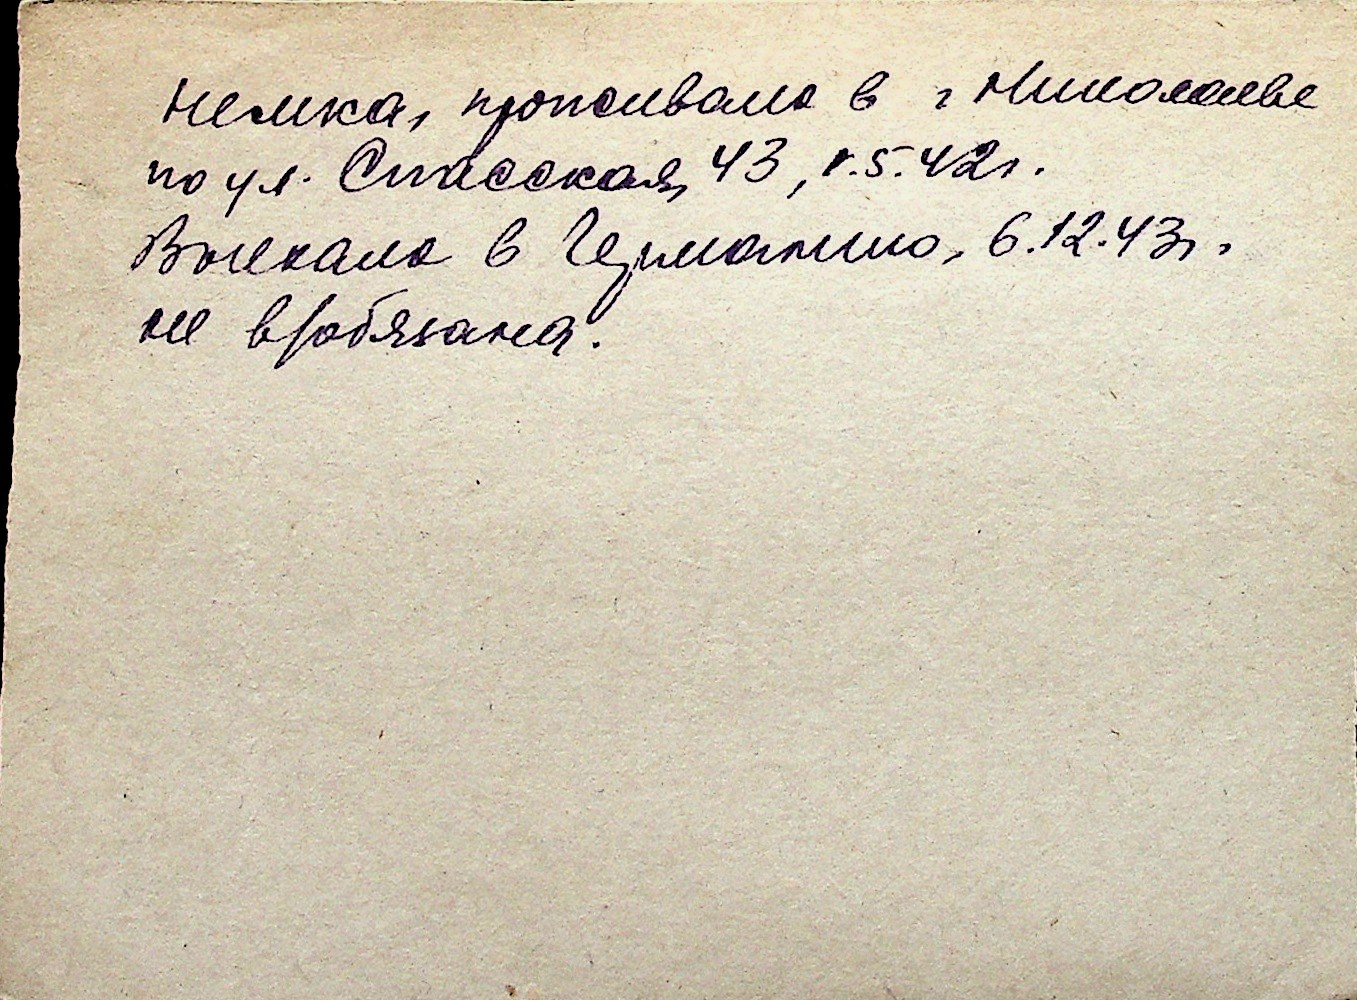 Немка, проживала в г Николаеве
по ул. Спасская, 43, 1.5.42г.
Выехала в Германию, 6.12.43г.
не в/обязана.